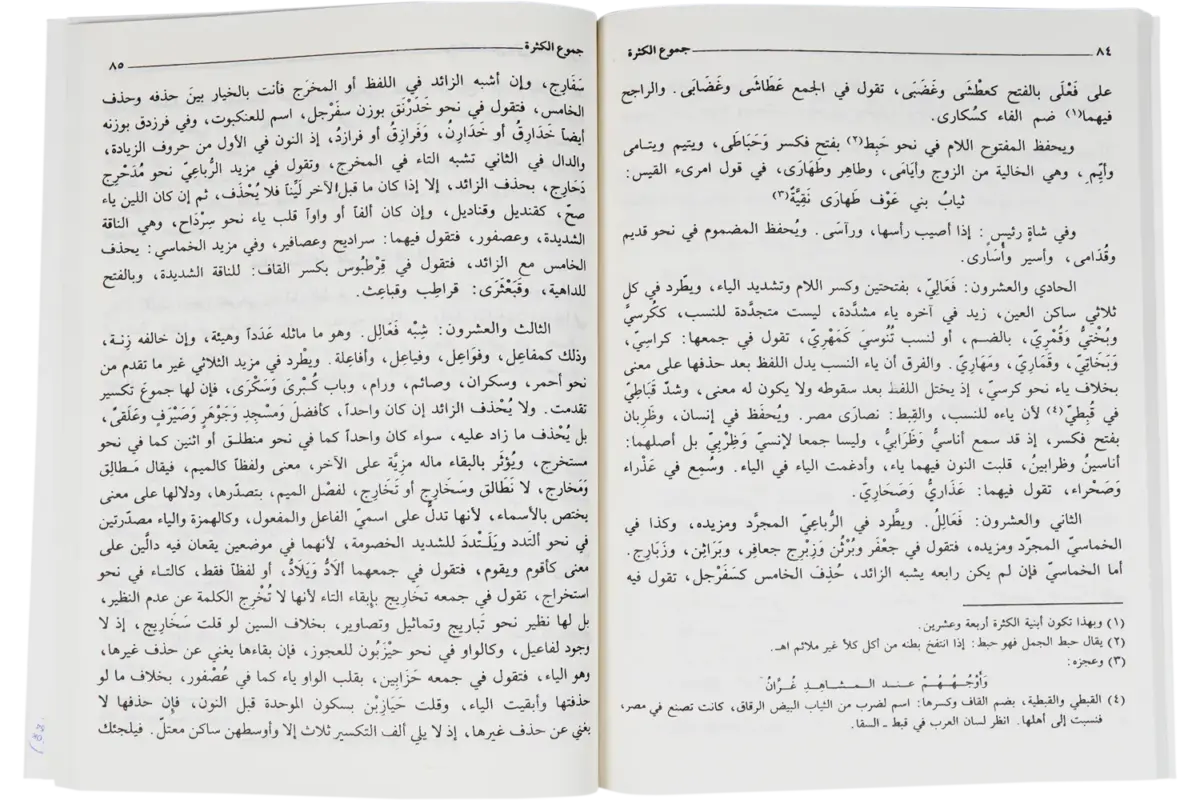 ٨٤ جموع الكثرة
على فَعْلَى بالفتح كعطْشَى وغَضْبَى، تقول في الجمع عَطَاشَى وغَضَابَى. والراجح
فيهما(١) ضم الفاء كسُكارى.
ويحفظ المفتوح اللام في نحو حَبِط(٢) بفتح فكسر وَحَبَاطَى، ويتيم ويتامى
وأيِّم، وهي الخالية من الزوج وأيَامَى، وطاهر وطَهَارَى، في قول امرىء القيس:
ثيابُ بني عَوْف طَهارَى نَقِيَّةٌ(٣)
وفي شاةٍ رئيسٍ: إذا أصيب رأسها، ورآسَى. ويُحفظ المضموم في نحو قديم
وقُدَامى، وأسير وأُسَارى.
الحادي والعشرون: فَعَالِيّ، بفتحتين وكسر اللام وتشديد الياء، ويطّرد في كل
ثلاثي ساكن العين، زيد في آخره ياء مشدَّدة، ليست متجدَّدة للنسب، ككُرسيّ
وبُخْتِيُّ وقُمْرِيّ، بالضم، أو لنسب تُنُوسيَ كَمَهْرِيّ، تقول في جمعها: كراسِيّ،
وَبَخَاتِيّ، وقَمَارِيّ، ومَهَارِيّ. والفرق أن ياء النسب يدل اللفظ بعد حذفها على معنى
بخلاف ياء نحو كرسيّ، إذ يختل اللفظ بعد سقوطه ولا يكون له معنى، وشذّ قَبَاطِيّ
في قُبطيّ(٤) لأن ياءه للنسب، والقِبط: نصارَى مصر. ويُحفَظ في إنسان، وظَرِبان
بفتح فكسر، إذ قد سمع أناسيُّ وظَرَابيُّ، وليسا جمعا لإنسيّ وَظِرْبِيّ بل أصلهما:
أناسينُ وظرابينُ، قلبت النون فيهما ياء، وأدغمت الياء في الياء. وسُمِع في عَذْراء
وَصَحْراء، تقول فيهما: عَذَاريُّ وَصَحَاريّ.
الثاني والعشرون: فَعَالِلُ. ويطَّرد في الرُّباعيّ المجرَّد ومزيده، وكذا في
الخماسيّ المجرّد ومزيده، فتقول في جعْفَر وبُرْثُن وَزِبْرِج جعافِر، وبَرَاثِن، وزَبَارِج.
أما الخماسيّ فإن لم يكن رابعه يشبه الزائد، حُذِفَ الخامس كسَفَرْجل، تقول فيه
(١) وبهذا تكون أبنية الكثرة أربعة وعشرين.
(٢) يقال حبط الجمل فهو حبط: إذا انتفخ بطنه من أكل كلأ غير ملائم اهـ.
(٣) وعجزه:
وَأَوْجُهُهُمْ عند المشاهِدِ غُرَّانُ
(٤) القبطي والقبطية، بضم القاف وكسرها: اسم لضرب من الثياب البيض الرقاق، كانت تصنع في مصر،
فنسبت إلى أهلها. انظر لسان العرب في قبط ـ السقا.
جموع الكثرة ٨٥
سَفَارِج، وإن أشبه الزائد في اللفظ أو المخرَج فأنت بالخيار بينَ حذفه وحذف
الخامس، فتقول في نحو خَدَرْنَق بوزن سفَرْجل، اسم للعنكبوت، وفي فرزدق بوزنه
أيضاً خَدَارِقُ أو خَدَارِنُ، وَفَرازِقُ أو فرازدُ، إذ النون في الأول من حروف الزيادة،
والدال في الثاني تشبه التاء في المخرج، وتقول في مزيد الرُّباعيّ نحو مُدَحْرِج
دَحَارِج، بحذف الزائد، إلا إذا كان ما قبل الآخر لَيِّناً فلا يُحْذف، ثم إن كان اللين ياء
صحّ، كقنديل وقناديل، وإن كان ألفاً أو واواً قلب ياء نحو سِرْدَاح، وهي الناقة
الشديدة، وعصفور، فتقول فيهما: سراديح وعصافير، وفي مزيد الخماسي: يحذف
الخامس مع الزائد، فتقول في قِرْطبُوس بكسر القاف: للناقة الشديدة، وبالفتح
للداهية، وقَبَعْثَرَى: قراطِب وقباعِث.
الثالث والعشرون: شِبْه فَعَالِل. وهو ما ماثله عَدَداً وهيئة، وإن خالفه زِنة،
وذلك كمفاعِل، وفواعِل، وفياعِل، وأفاعِلة. ويطَّرد في مزيد الثلاثي غير ما تقدم من
نحو أحمر، وسكران، وصائم، ورام، وباب كُبْرَىَ وَسَكْرَى، فإن لها جموعَ تكسير
تقدمت. ولا يُحْذف الزائد إن كان واحداً، كأفضلَ وَمَسْجِدٍ وَجَوْهَرٍ وَصَيْرَفٍ وعَلْقىً،
بل يُحْذف ما زاد عليه، سواء كان واحداً كما في نحو منطلق أو اثنين كما في نحو
مستخرج، ويُؤثَر بالبقاء ماله مزِيَّة على الآخر، معنى ولفظاً كالميم، فيقال مَطالِق
وَمَخارج، لا نَطَالق وسَخَارِج أو تَخَارِج، لفضْل الميم، بتصدّرها، ودلالها على معنى
يختص بالأسماء، لأنها تدلُّ على اسميّ الفاعل والمفعول، وكالهمزة والياء مصدّرتين
في نحو ألَنْدد ويَلَنْدد للشديد الخصومة، لأنهما في موضعين يقعان فيه دالَّين على
معنى كأقوم ويقوم، فتقول في جمعهما ألاَدُّ وَيَلاَدُّ، أو لفظاً فقط، كالتاء في نحو
استخراج، تقول في جمعه تخارِيج بإبقاء التاء لأنها لا تُخْرج الكلمة عن عدم النظير،
بل لها نظير نحو تَباريج وتماثيل وتصاوير، بخلاف السين لو قلت سَخَارِيج، إذ لا
وجود لفاعيل، وكالواو في نحو حَيْزَبُون للعجوز، فإن بقاءها يغني عن حذف غيرها،
وهو الياء، فتقول في جمعه حَزَابين، بقلب الواو ياء كما في عُصْفور، بخلاف ما لو
حذفتها وأبقيت الياء، وقلت حَيَازبْن بسكون الموحدة قبل النون، فإن حذفها لا
يغني عن حذف غيرها، إذ لا يلي ألف التكسير ثلاث إلا وأوسطهن ساكن معتلّ. فيلجئك